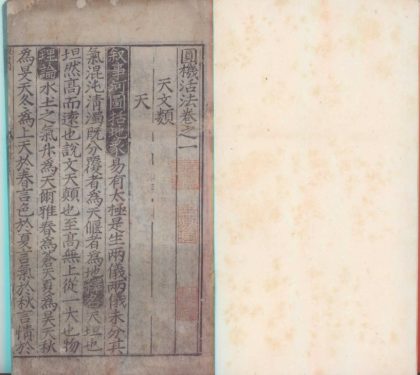 圓機活法卷之一
天文類
天
叙事河圖括地象易有太極是生兩儀兩儀未分其
氣混沌清濁既分覆者為天偃者為地釋名天坦也
坦然高而遠也說文天顛也至高無上從一大也物
理論水土之氣升為天爾雅春為蒼天夏為昊天秋
為旻天冬為上天於春言色於夏言氣於秋言情於